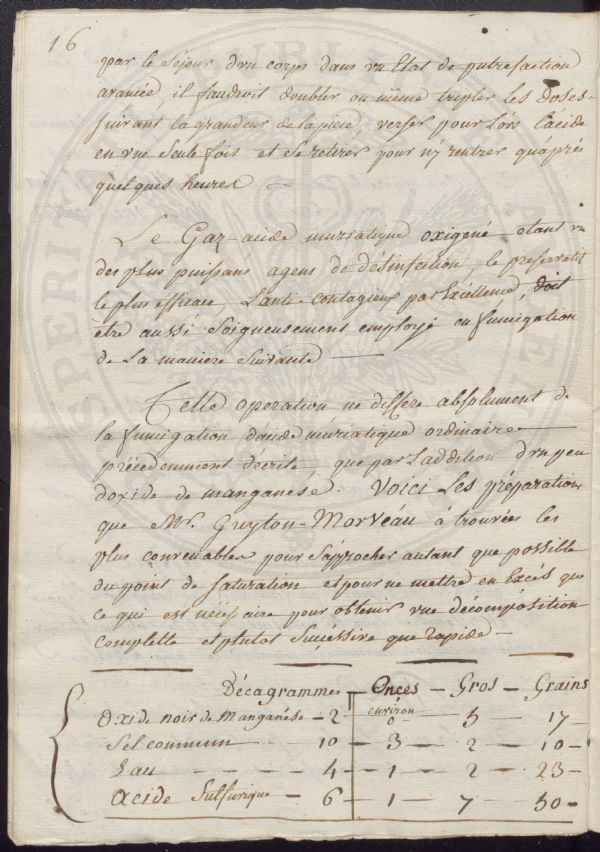 16
par le Séjour d'un corps dans un Etat de putrefaction
avancée, il faudroit doubler ou même tripler les Doses
suivant la grandeur de la piece, verser pour Lors L'acide
en une Seule fois et Se retirer pour n'y rentrer qu'après
quelques heures —
Le Gaz-acide muriatique oxigené étant un
des plus puissans agens de désinfection, le préservatif
le plus efficace, L'anti-contagieux par Excellence, doit
être aussi Soigneusement employé en fumigation
de La maniere Suivante —
Cette operation ne differe absolument de
la fumigation d'acide muriatique ordinaire
précédemment décrite, que par L'addition d'un peu
d'oxide de manganése. Voici Les préparations
que Mr. Guyton-Morveau à trouvées les
plus convenables pour S'approcher autant que possible
du point de Saturation et pour ne mettre en Excés que
ce qui est nécessaire pour obtenir une décomposition
complette et plutot Successive que rapide —
Décagrammes — Onces — Gros — Grains
environ
Oxide noir de Manganése — 2 — 0 — 5 — 17 —
Sel commun — 10 — 3 — 2 — 10 —
Eau — — — — 4 — 1 — 2 — 23 —
Acide Sulfurique — 6 — 1 — 7 — 50 —